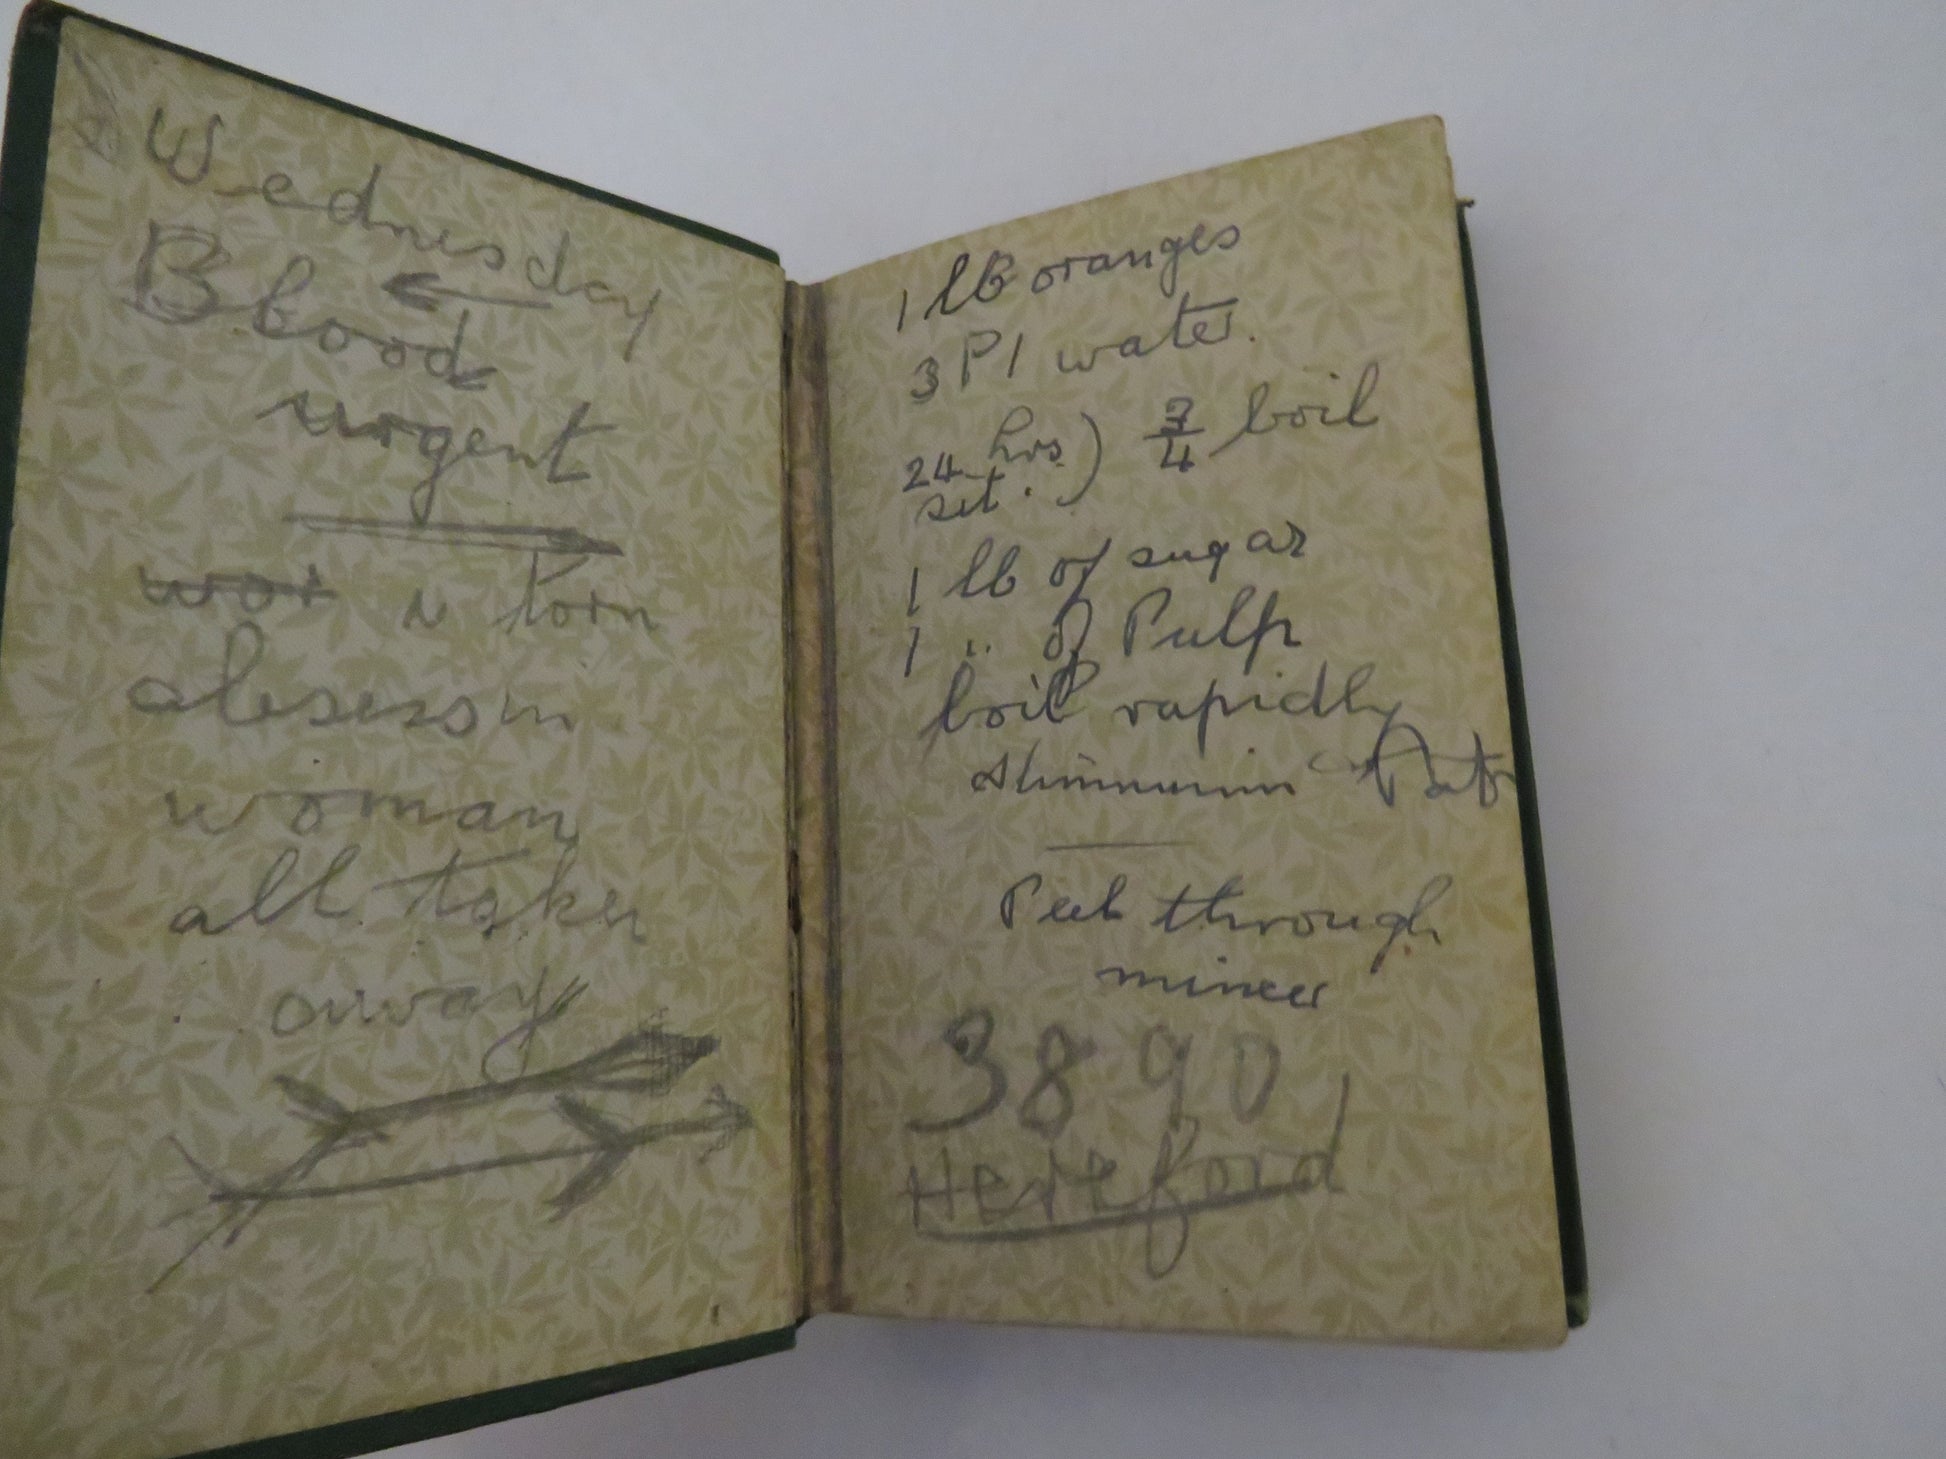 Wednesday
Blood
urgent
wor
absess in
woman
all taken
away
1 lB oranges
3 PI water.
24 hrs.) 3/4 boil
set.
1 lb of sugar
1 " of Pulp
boil rapidly
Peel through
mincer
3890
Hereford